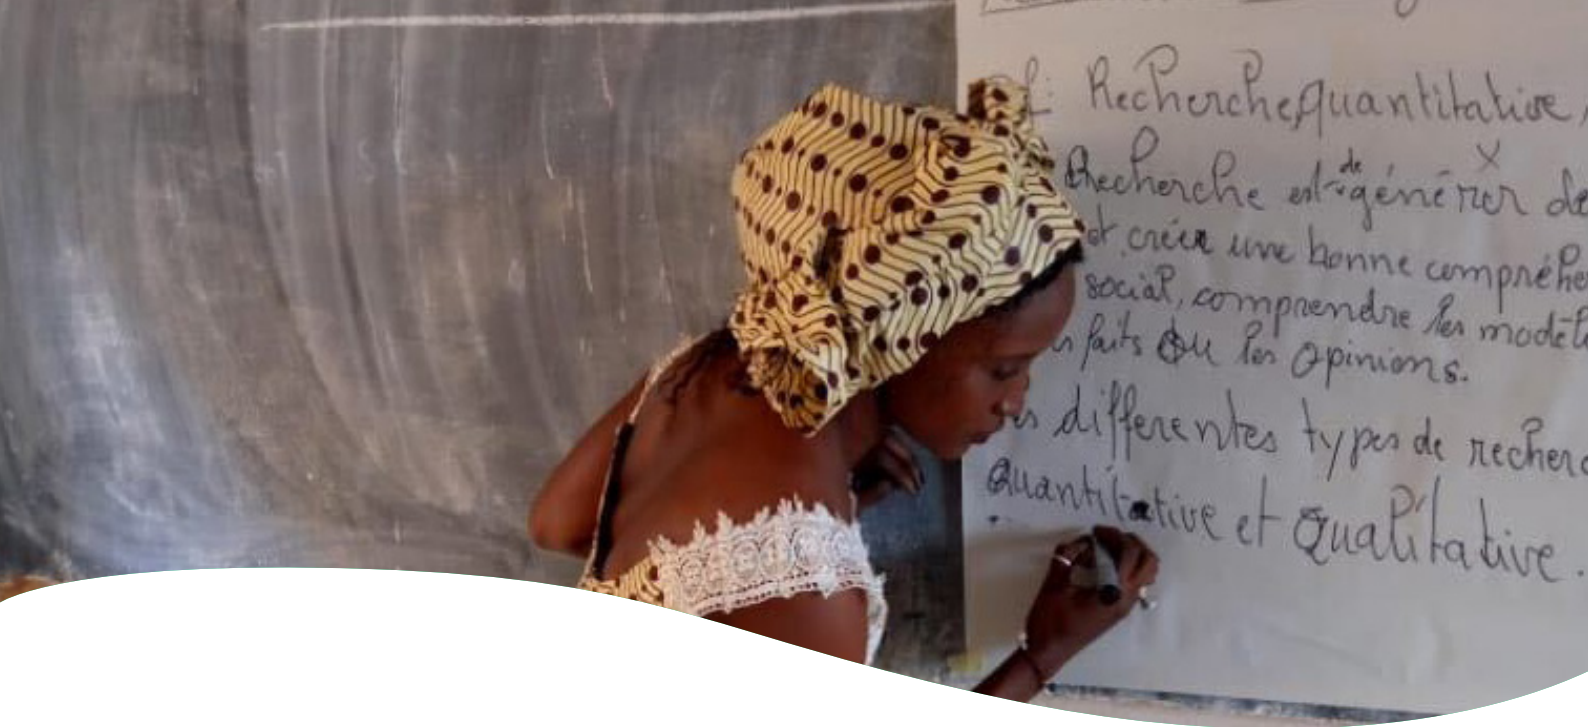 Recherche quantitative,
Recherche est de générer de
et créer une bonne compréhe
social, comprendre les modèl
faits ou les opinions.
differentes types de recherc
Quantitative et Qualitative.